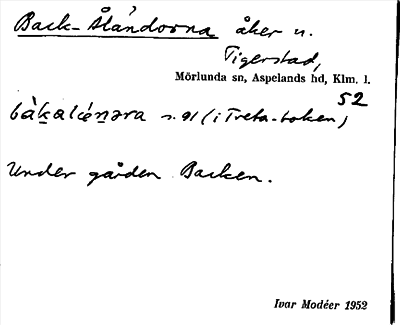 Back-Åländorna åker n.
Tigerstad,
Mörlunda sn, Aspelands hd, Klm. l.
52
s. 91 (i Treta-boken)
Under gården Backen.
Ivar Modéer 1952